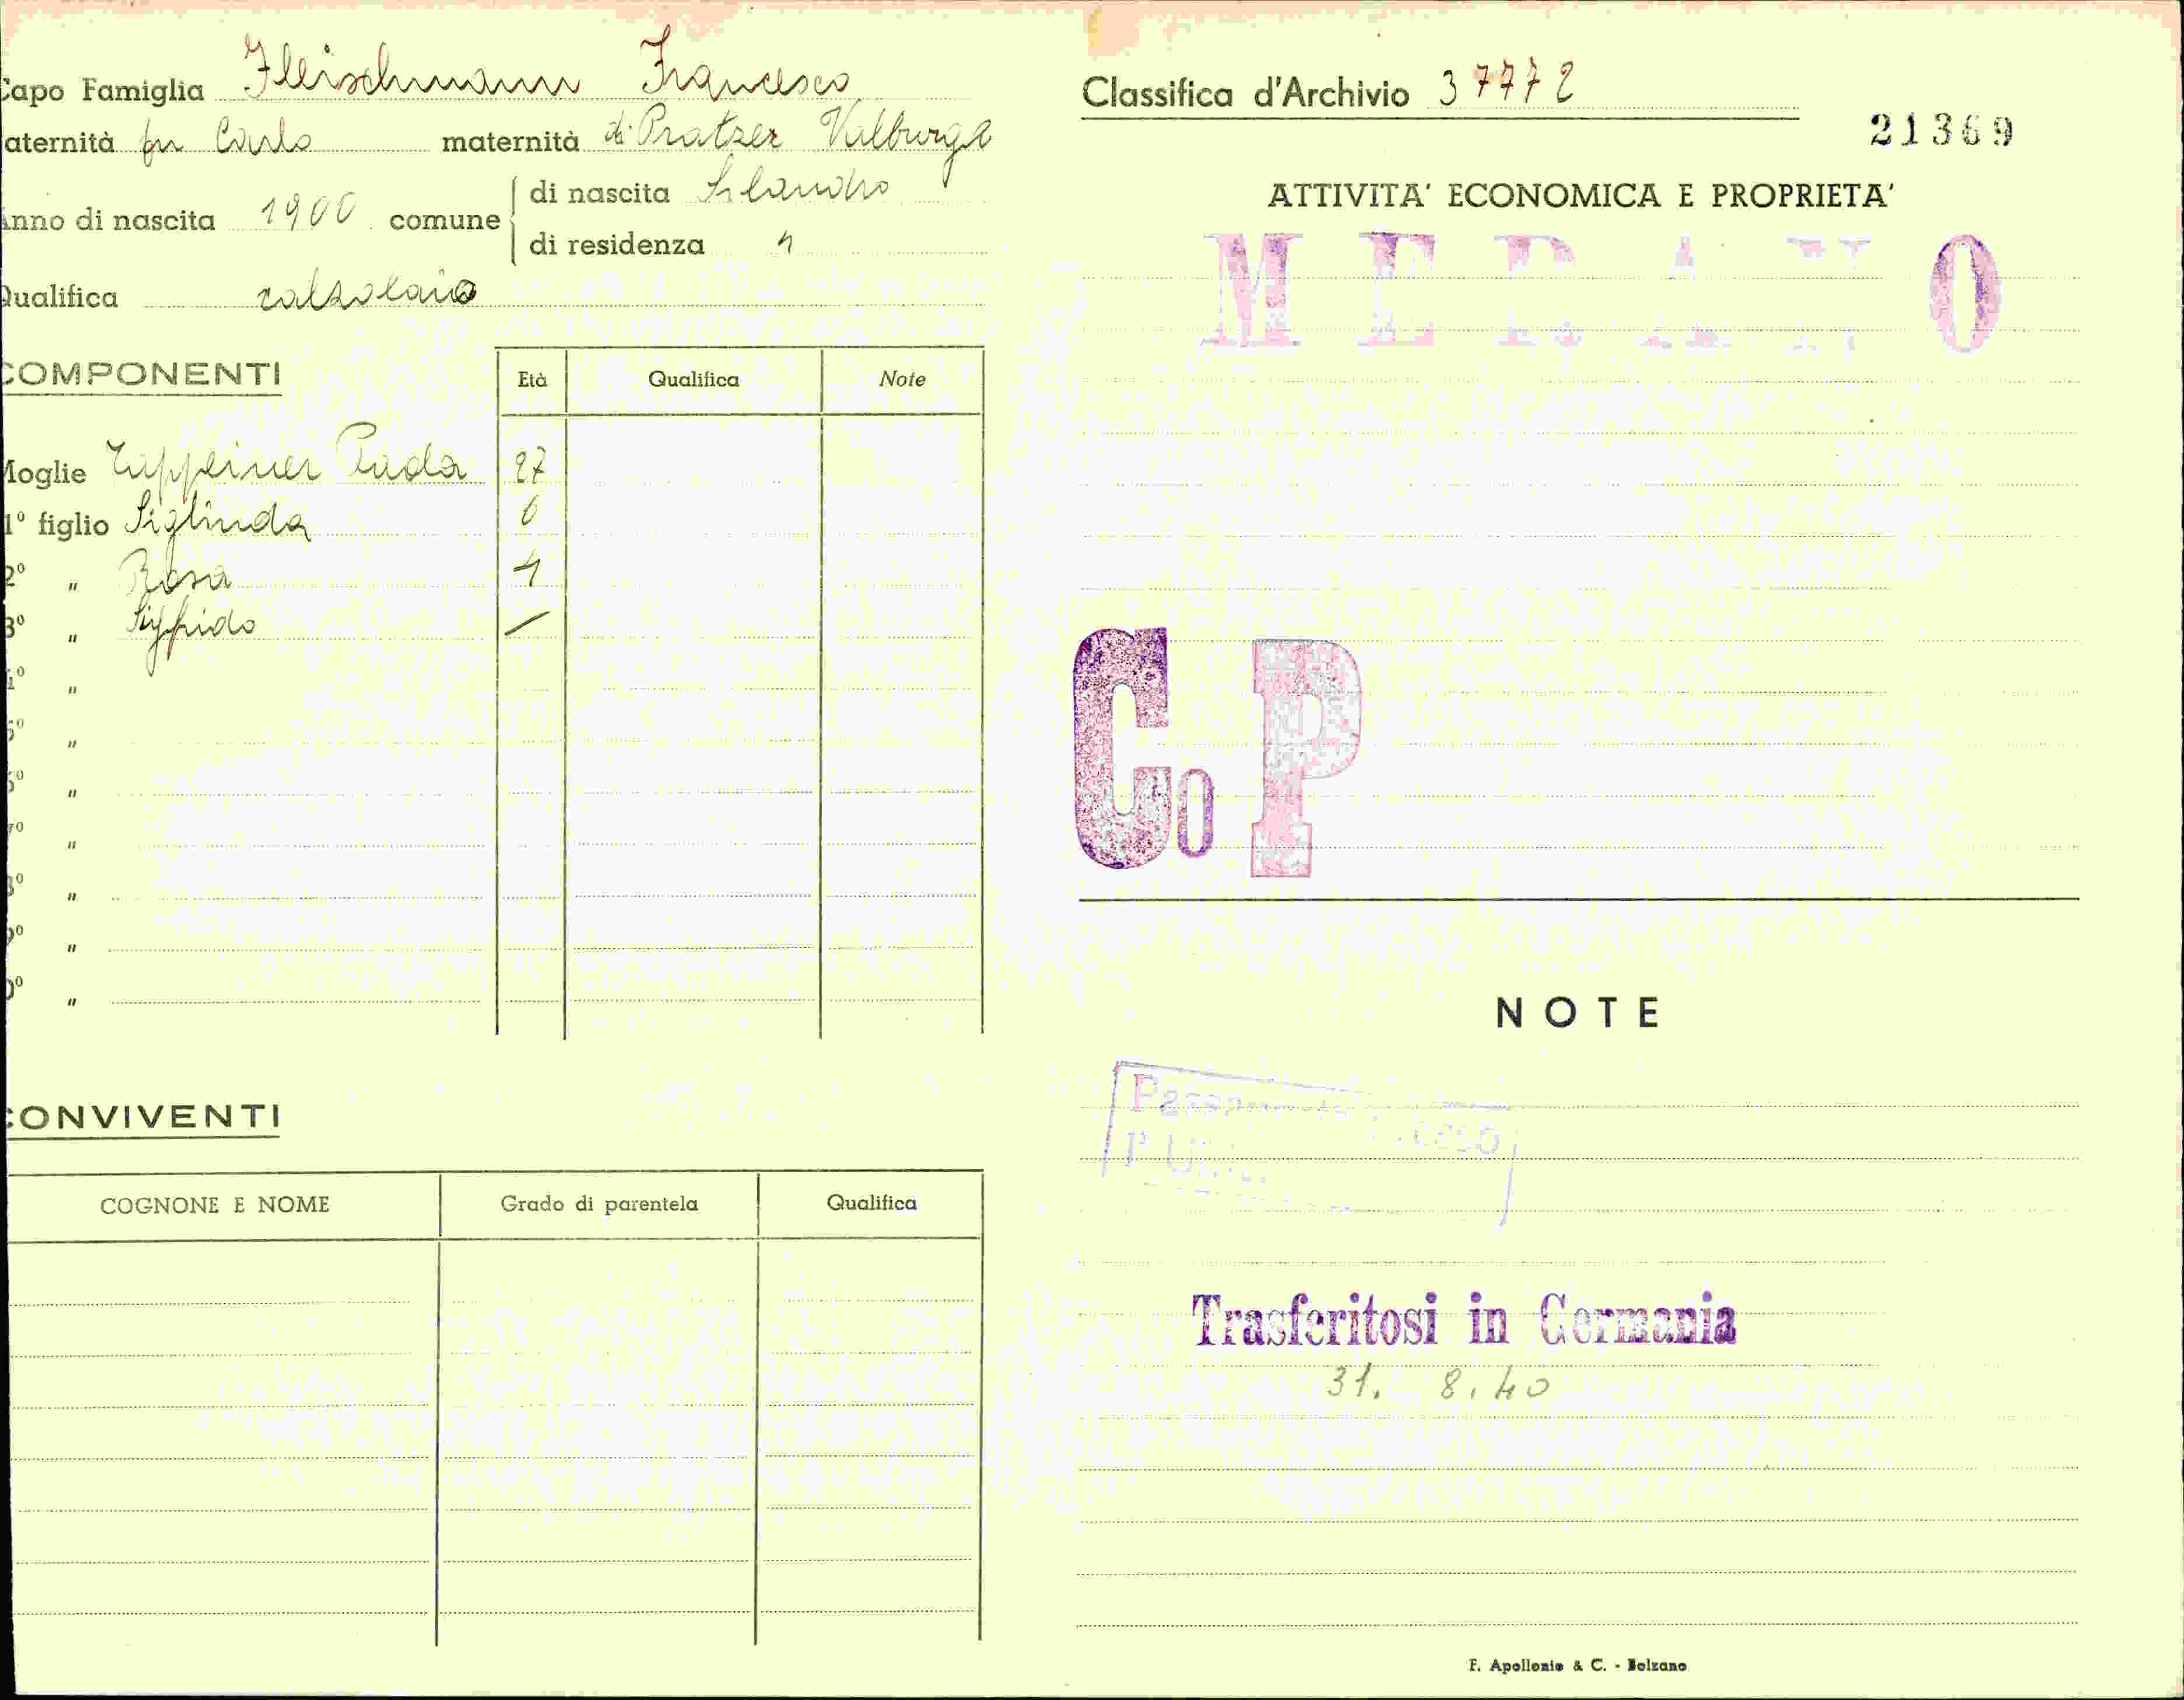 Capo Famiglia Fleischmann Francesco
aternità fu Carlo maternità di Pratzer Valburga
Anno di nascita 1900 comune di nascita Silandro
di residenza "
Qualifica calzolaio
COMPONENTI
Età Qualifica Note
Moglie Tappeiner Paola 27
1° figlio Siglinda 6
2° " Rosa 4
3° " Sigfrido /
4° "
5° "
6° "
7° "
8° "
9° "
0° "
CONVIVENTI
COGNONE E NOME Grado di parentela Qualifica
Classifica d'Archivio 37772
21369
ATTIVITA' ECONOMICA E PROPRIETA'
MERANO
Co P
NOTE
Trasferitosi in Germania
31. 8. 40
F. Apollonio & C. - Bolzano